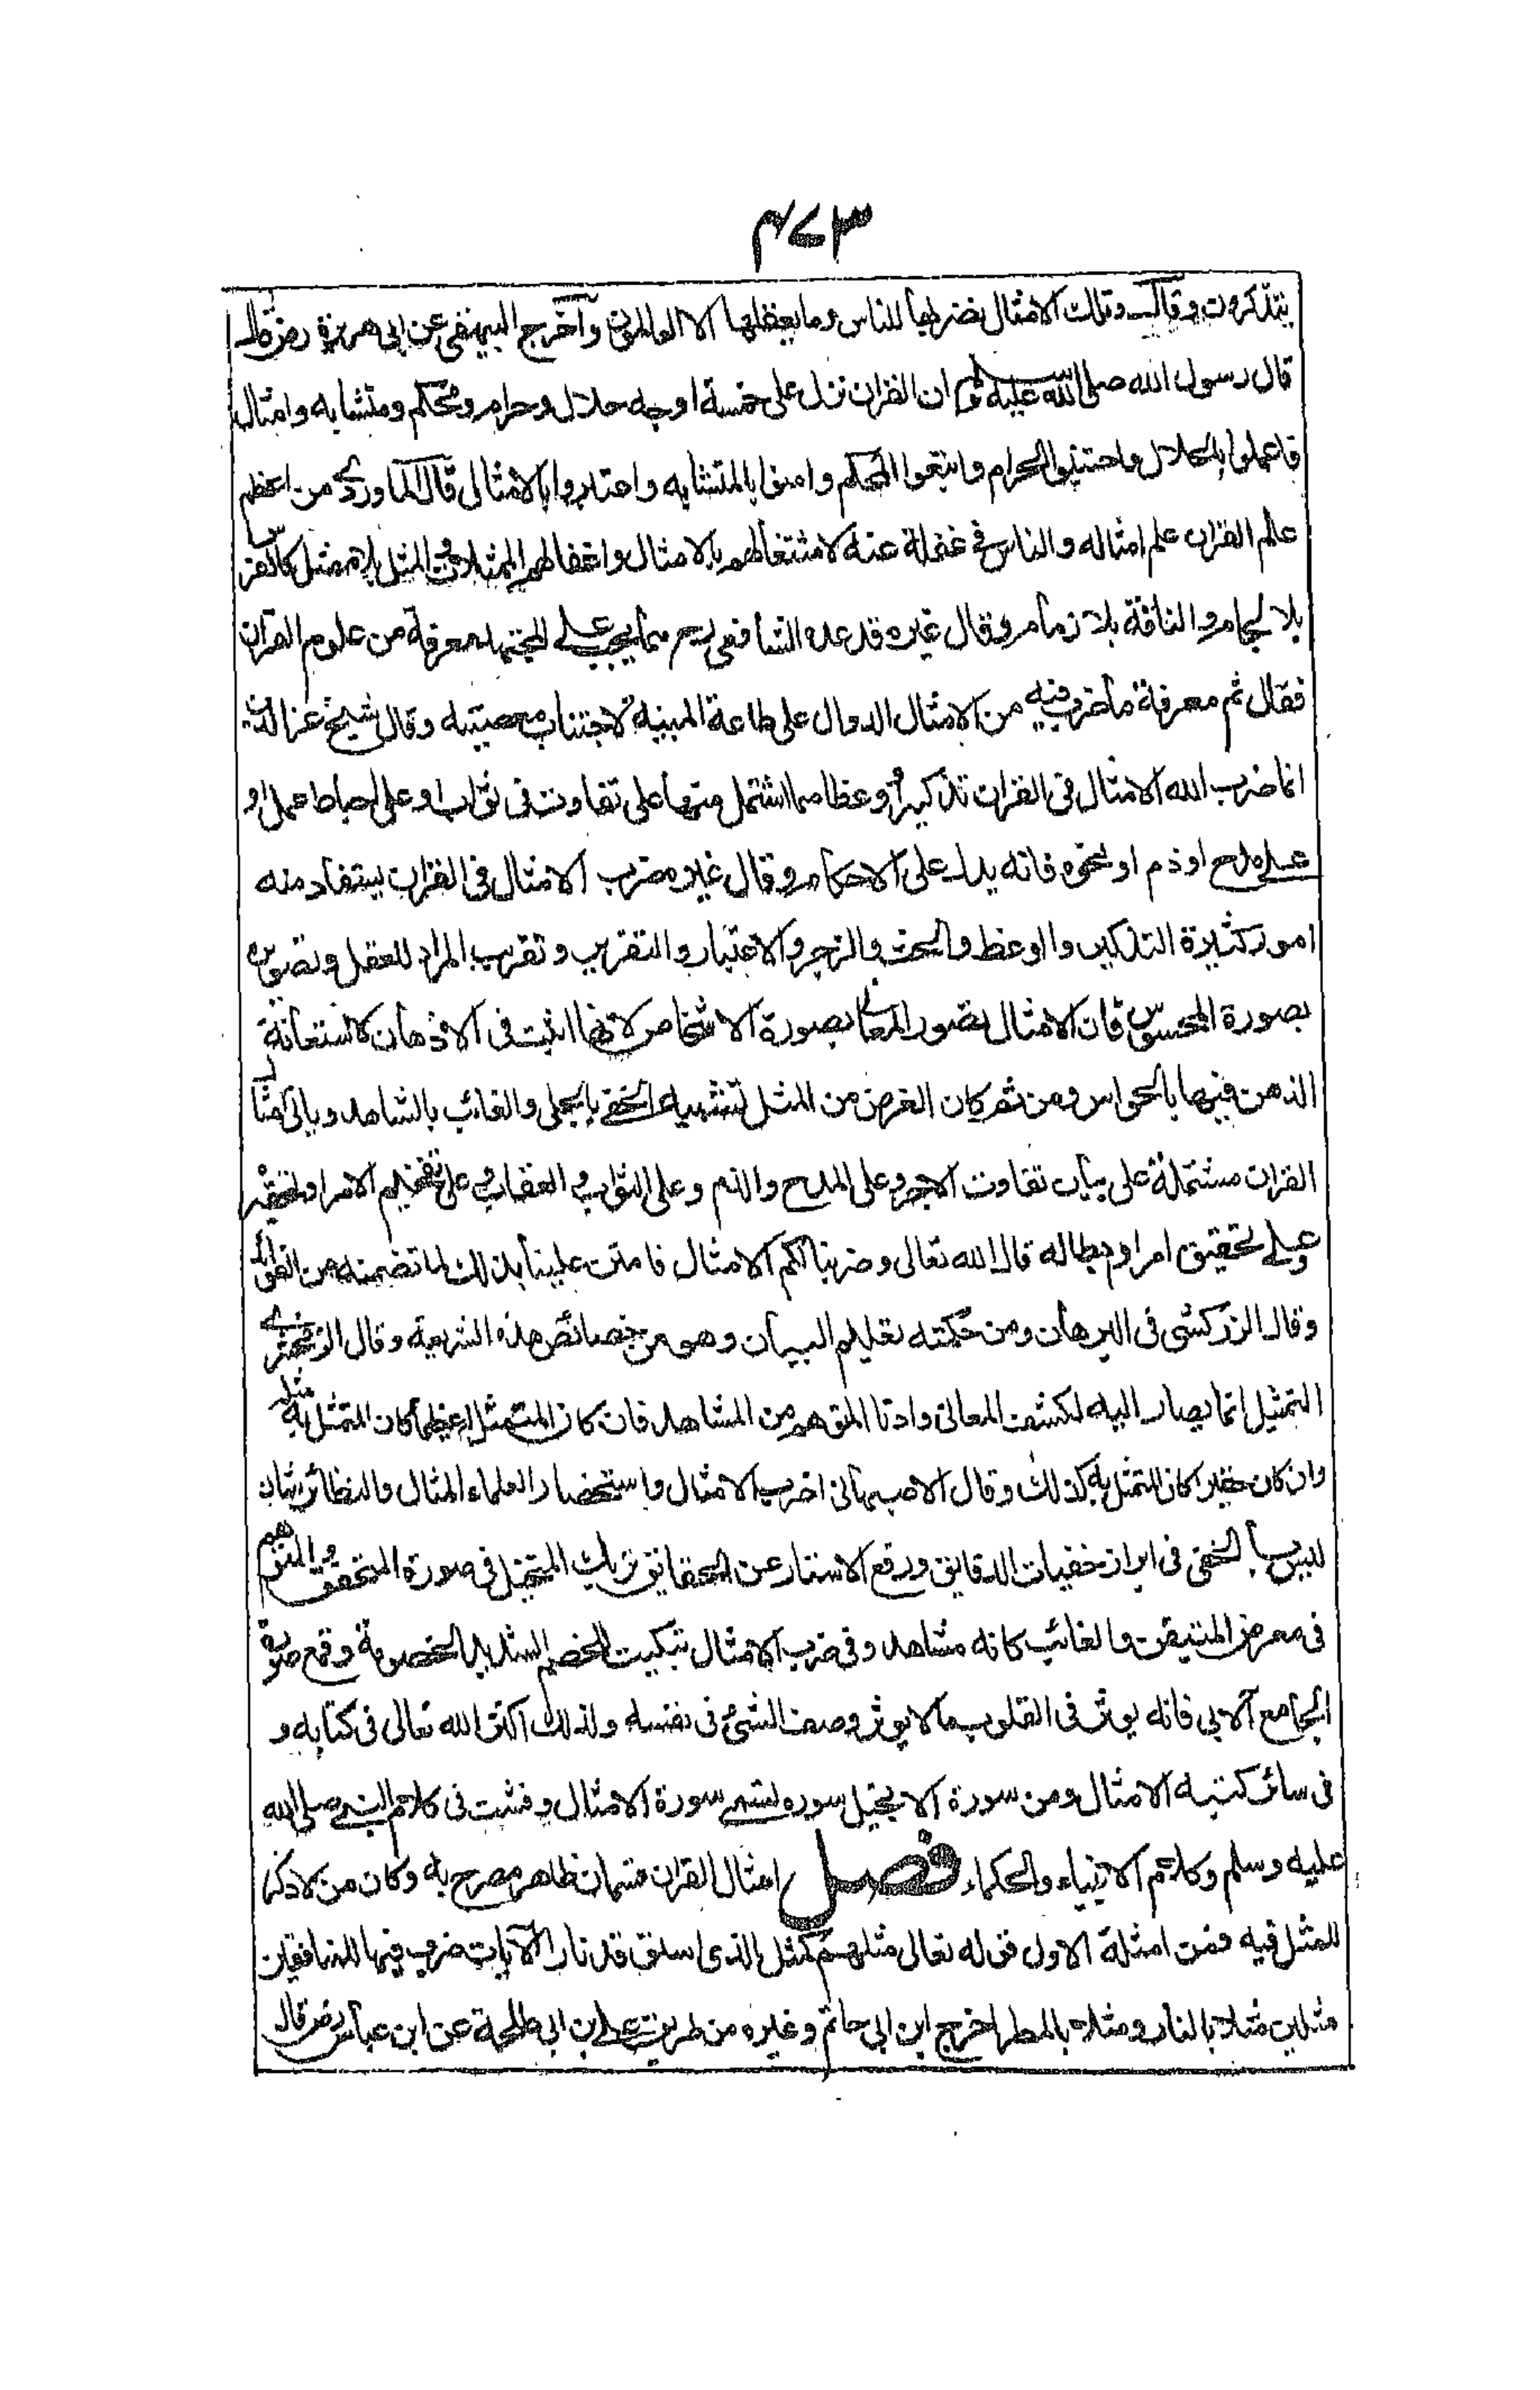 ٤٧٣
يتذكرون وقال وتلك الامثال نضربها للناس وما يعقلها الا العالمون وآخرج البيهقى عن ابى هريرة رضقال
قال رسول الله صلى الله عليه وسلم ان القران نزل على خمسة اوجه حلال وحرام ومحكم ومتشابه وامثال
فاعملوا بالحلال واجتنبوا الحرام واتبعوا المحكم وامنوا بالمتشابه واعتبروا بالامثال قال الماوردى من اعظم
علم القران علم امثاله والناس فى غفلة عنه لاشتغالهم بالامثال واغفالهم الممثلات والمثل بلا ممثل كالفرس
بلا لجام والناقة بلا زمام وقال غيره قد عده الشافعى رح مما يجب على المجتهد معرفة من علوم القران
فقال ثم معرفة ما ضرب فيه من الامثال الدوال على طاعة المبينه لاجتناب معصيته وقال شيخ عزالدين
انما ضرب الله الامثال فى القران تذكيرا ووعظا مما اشتمل منها على تفاوت فى ثواب او على احباط عمل او
على مدح او ذم او نحوه فانه يدل على الاحكام وقال غيره ضرب الامثال فى القران يستفاد منه
امور كثيرة التذكير والوعظ والحث والزجر والاعتبار والتقرير وتقريب المراد للعقل وتصويره
بصورة المحسوس فان الامثال تصور المعانى بصورة الاشخاص لانها اثبت فى الاذهان كاستعانة
الذهن فيها بالحواس ومن ثم كان الغرض من المثل تشبيه الخفى بالجلى والغائب بالشاهد وياتى امثال
القران مشتملة على بيان تفاوت الاجر وعلى المدح والذم وعلى الثواب والعقاب وعلى تفخيم الامر او تحقيره
وعلى تحقيق امر او ابطاله قال الله تعالى وضربنا لكم الامثال فامتن علينا بذلك لما تضمنه من الفوائد
وقال الزركشى فى البرهان ومن حكمته تعليم البيان وهو من خصائص هذه الشريعة وقال الزمخشرى
التمثيل انما يصار اليه لكشف المعانى وادنا المتوهم من المشاهد فان كان المتمثل له عظيما كان المتمثل به مثله
وان كان حقيرا كان المتمثل به كذلك وقال الاصبهانى اضرب الامثال واستحضار العلماء المثال والنظائر شان
ليس با لخفى فى ابراز خفيات الدقايق ورفع الاستار عن الحقايق تريك المتخيل فى صورة المتحقق والمتوهم
فى معرض المتيقن والغائب كانه مشاهد وفى ضرب الامثال تبكيت للخصم الشديد الخصومة وقمع صورة
الجامع الابى فانه يوثر فى القلوب ما لا يوثر وصف الشئ فى نفسه ولذلك اكثر الله تعالى فى كتابه و
فى سائر كتبه الامثال ومن سورة الانجيل سوره تسمى سورة الامثال وفشت فى كلام النبى صلى الله
عليه وسلم وكلام الانبياء والحكماء فصل امثال القران قسمان ظاهر مصرح به وكان من لا ذكر
للمثل فيه فمن امثلة الاول قوله تعالى مثلهم كمثل الذى استوقد نارا الآيات ضرب فيها للمنافقين
مثلين مثلا بالنار ومثلا بالمطر اخرج ابن ابى حاتم وغيره من طريق على بن ابى طلحة عن ابن عباس رضقال